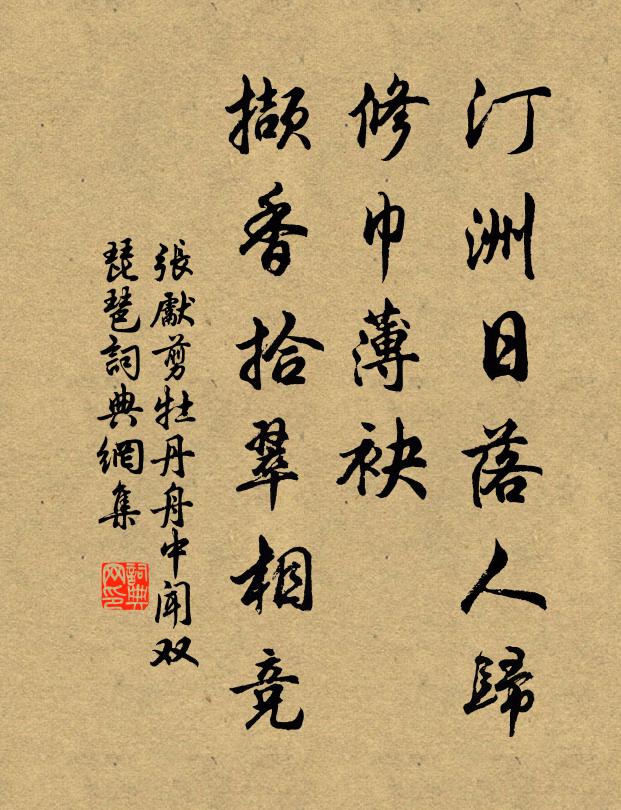 汀洲日落人歸
修巾薄袂
擷香拾翠相競
張獻剪牡丹舟中聞双
琵琶詞典網集
詞典网印